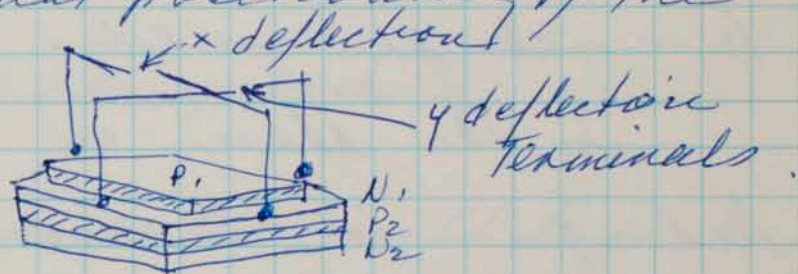 of the
x deflection
y deflection
Terminals.
P1
N1
P2
N2